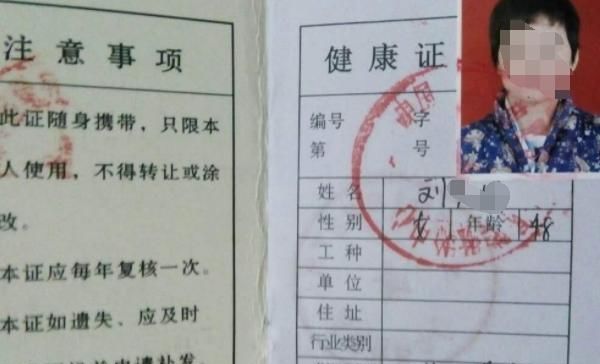 注意事项
此证随身携带，只限本
人使用，不得转让或涂
改。
本证应每年复核一次。
本证如遗失、应及时
补发。
健康证
编号 字
第 号
姓名 刘
性别 女 年龄 48
工种
单位
住址
行业类别